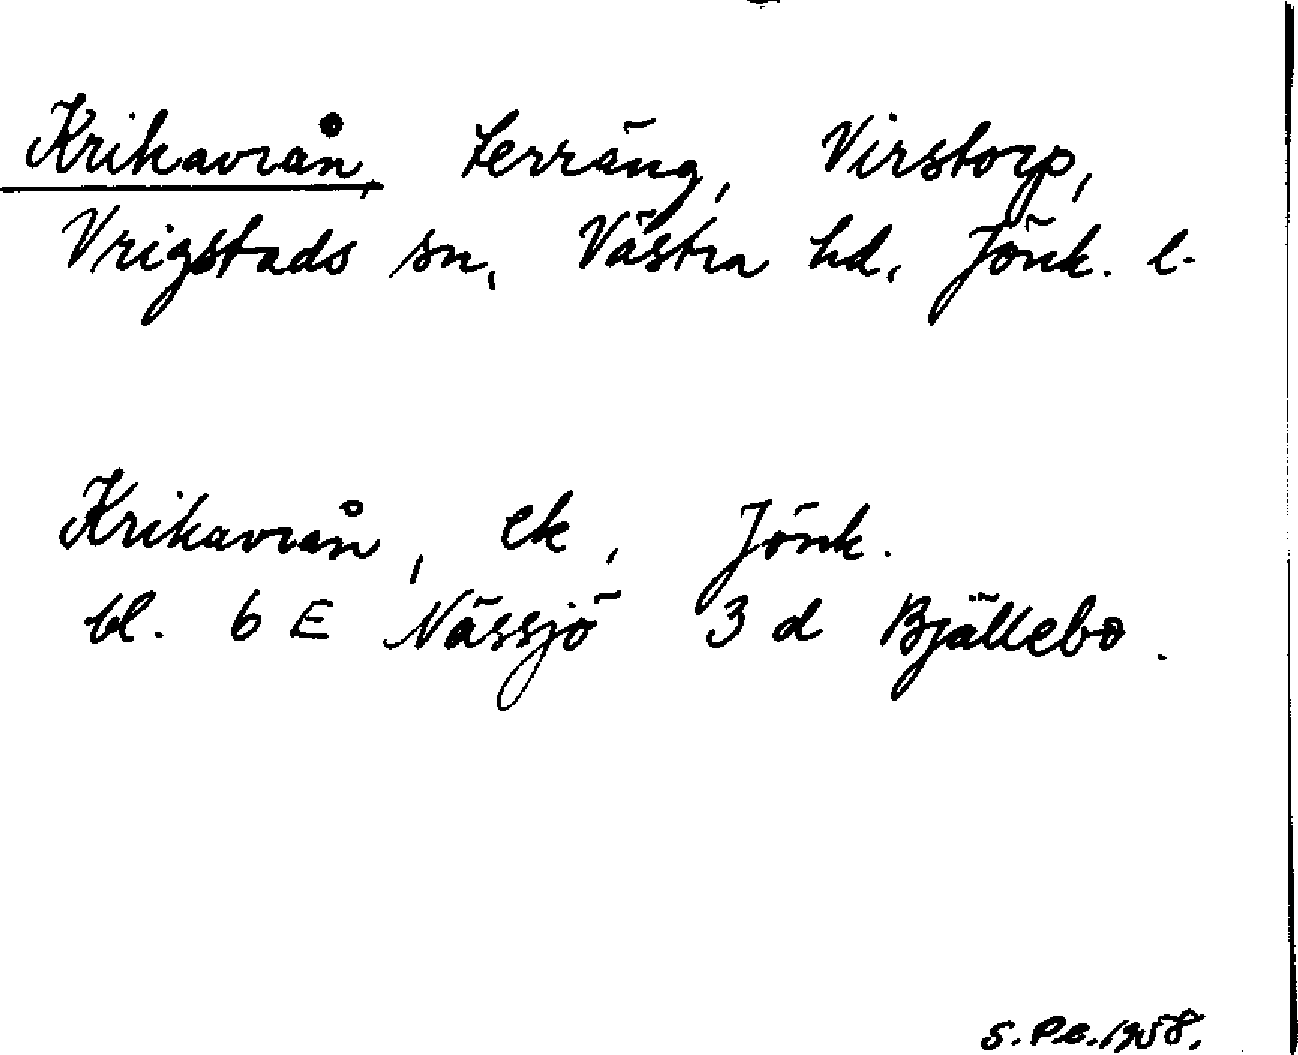 Krikavrån, terräng, Virstorp,
Vrigstads sn, Västra hd, Jönk. l.
Krikavrån, ek, Jönk.
bl. 6 E Nässjö 3 d Bjällebo.
S. P.B. 1958.